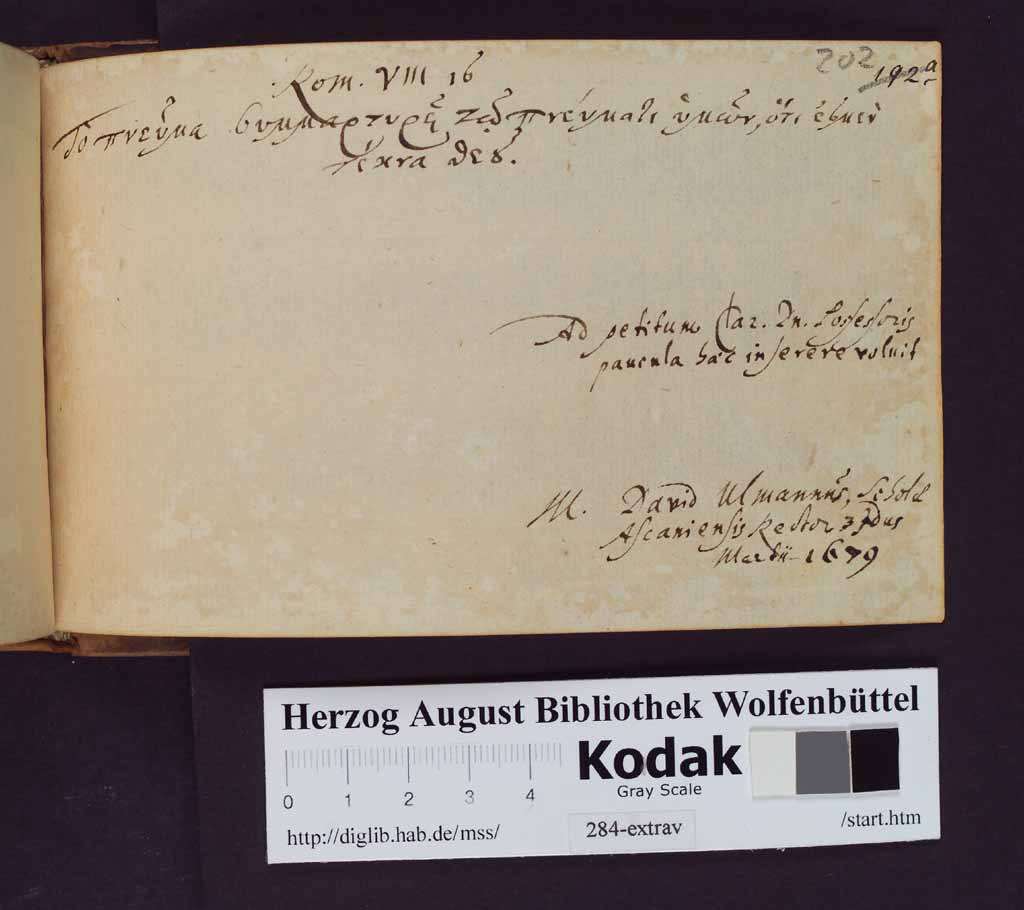 202
192a
Rom. VIII 16
Τὸ πνεῦμα συμμαρτυρεῖ τῷ πνεύματι ἡμῶν, ὅτι ἐσμὲν
τέκνα θεȣ͂.
Ad petitum Clar. Dn. Possessoris
paucula hæc inserere voluit
M. David Ulmannus, Scholæ
Ascaniensis Rector 3 Idus
Martii 1679
Herzog August Bibliothek Wolfenbüttel
Kodak
Gray Scale
0 1 2 3 4
http://diglib.hab.de/mss/ 284-extrav /start.htm